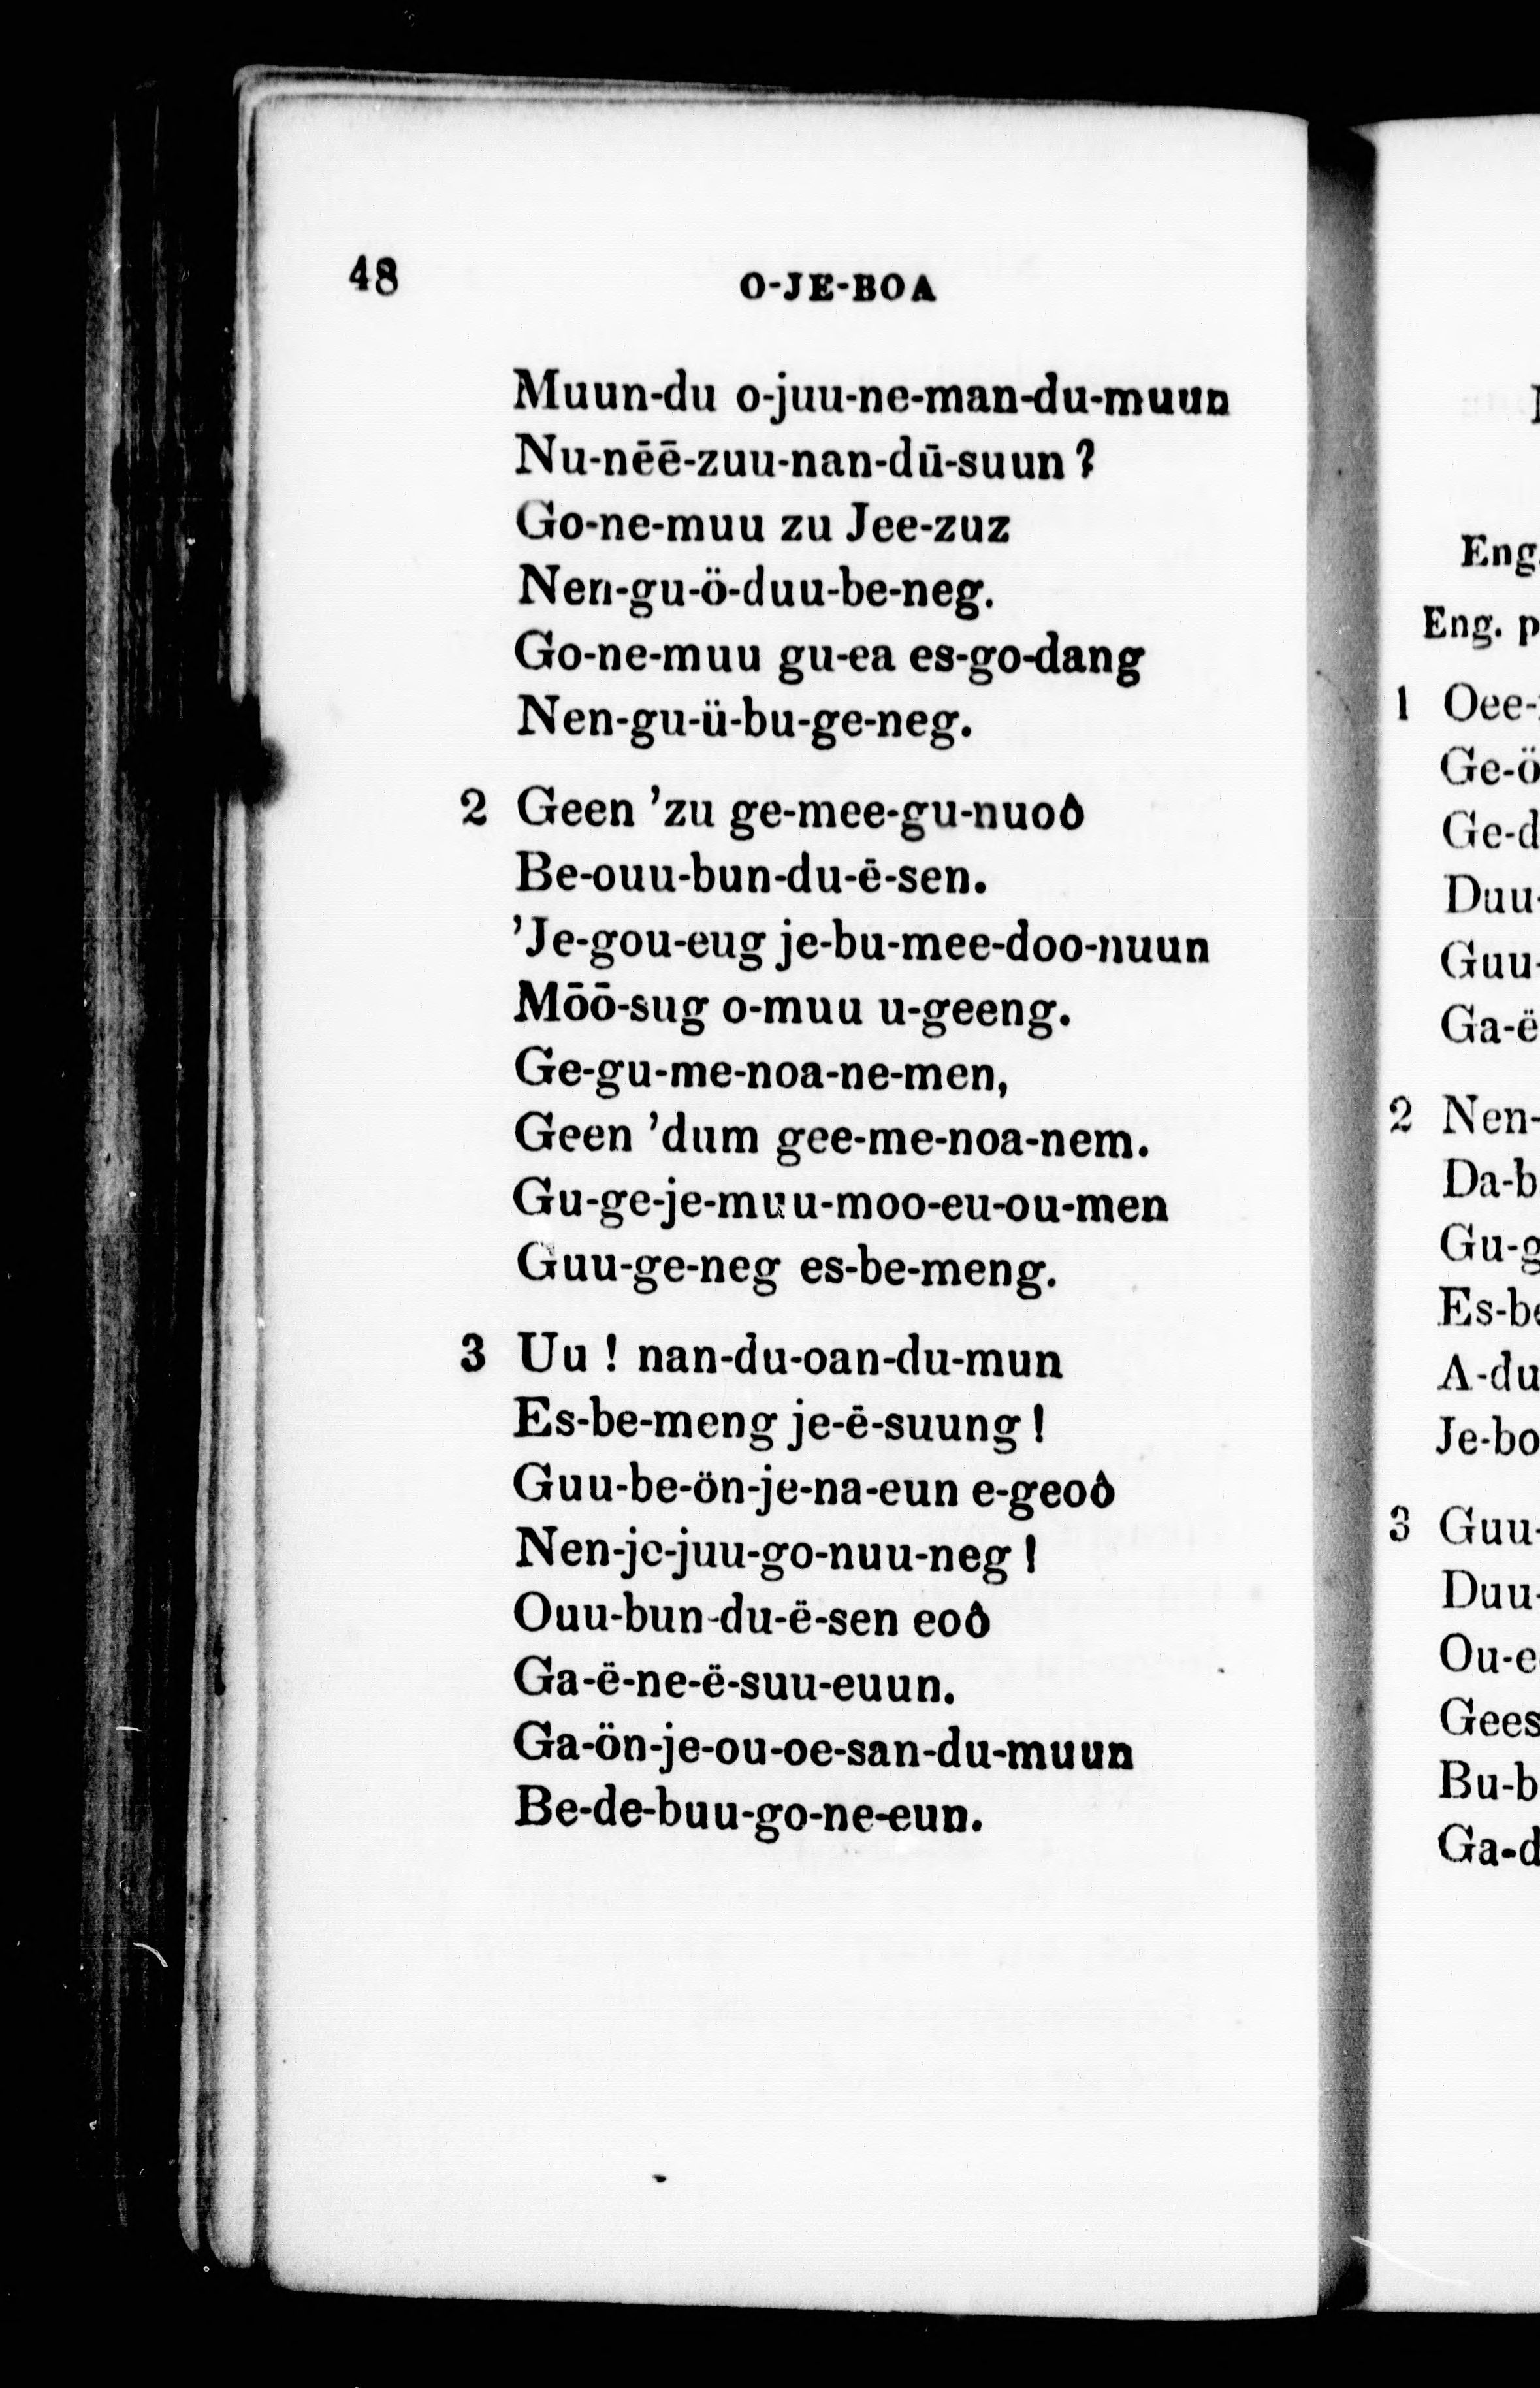 48
O-JE-BOA
Muun-du o-juu-ne-man-du-muun
Nu-nēē-zuu-nan-dū-suun?
Go-ne-muu zu Jee-zuz
Nen-gu-ö-duu-be-neg.
Go-ne-muu gu-ea es-go-dang
Nen-gu-ü-bu-ge-neg.
2 Geen ’zu ge-mee-gu-nuoô
Be-ouu-bun-du-ë-sen.
’Je-gou-eug je-bu-mee-doo-nuun
Mōō-sug o-muu u-geeng.
Ge-gu-me-noa-ne-men,
Geen ’dum gee-me-noa-nem.
Gu-ge-je-muu-moo-eu-ou-men
Guu-ge-neg es-be-meng.
3 Uu! nan-du-oan-du-mun
Es-be-meng je-ë-suung!
Guu-be-ön-je-na-eun e-geoô
Nen-je-juu-go-nuu-neg!
Ouu-bun-du-ë-sen eoô
Ga-ë-ne-ë-suu-euun.
Ga-ön-je-ou-oe-san-du-muun
Be-de-buu-go-ne-eun.
Eng.
Eng. p
1 Oee-
Ge-ö
Ge-d
Duu-
Guu-
Ga-ë
2 Nen-
Da-b
Gu-g
Es-be
A-du
Je-bo
3 Guu-
Duu-
Ou-e
Gees
Bu-b
Ga-d